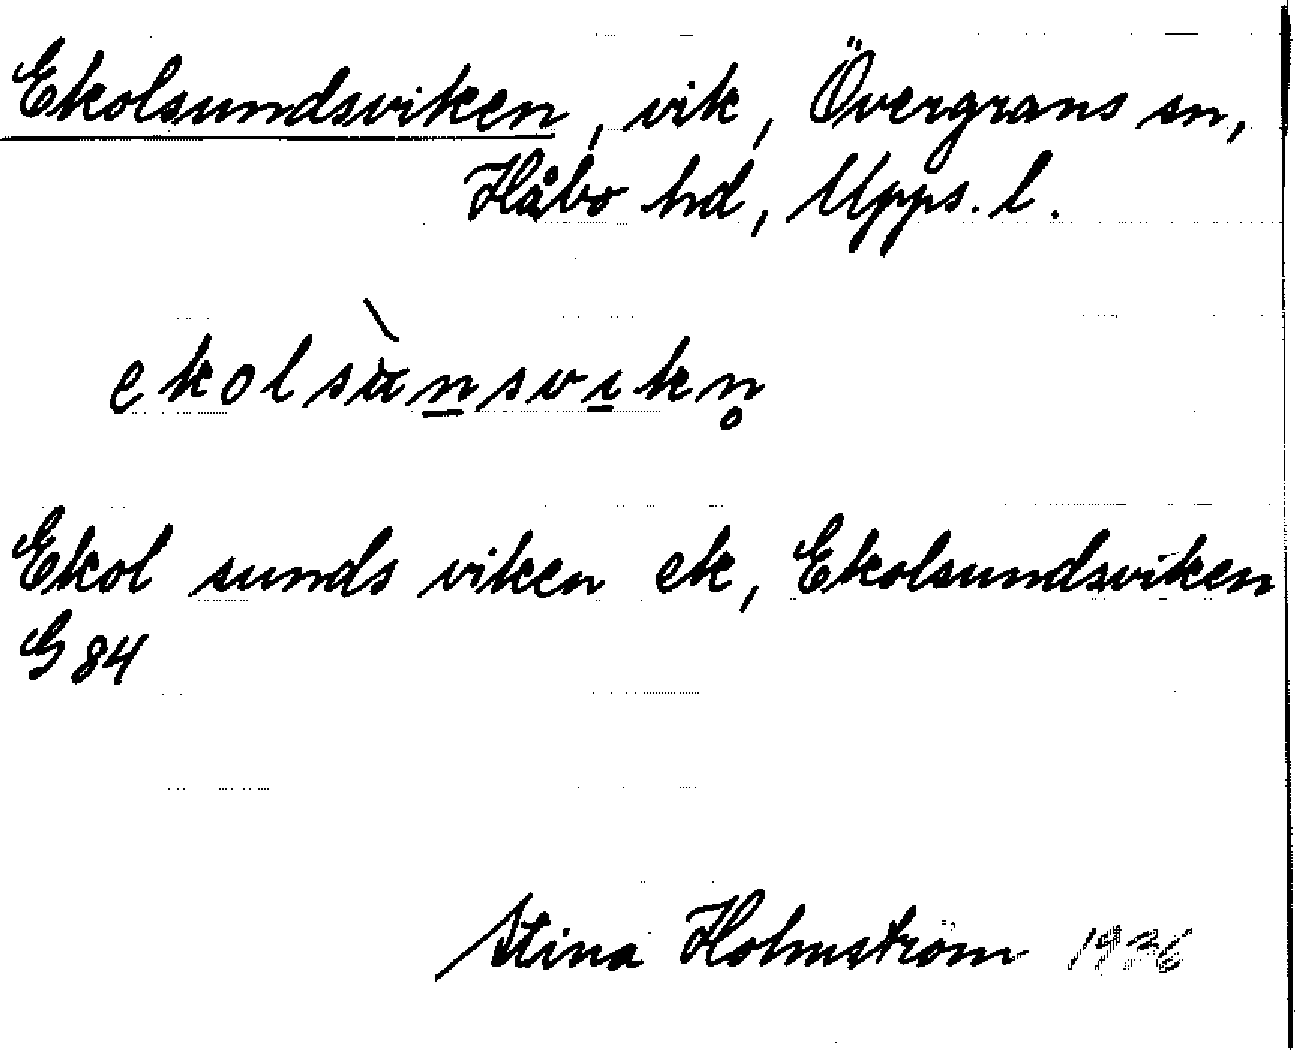 Ekolsundsviken, vik, Övergrans sn,
Håbo hd, Upps. l.
ekolsùn̲svi̲kn̥
Ekol sunds viken ek, Ekolsundsviken
G 84
Stina Holmström 1936